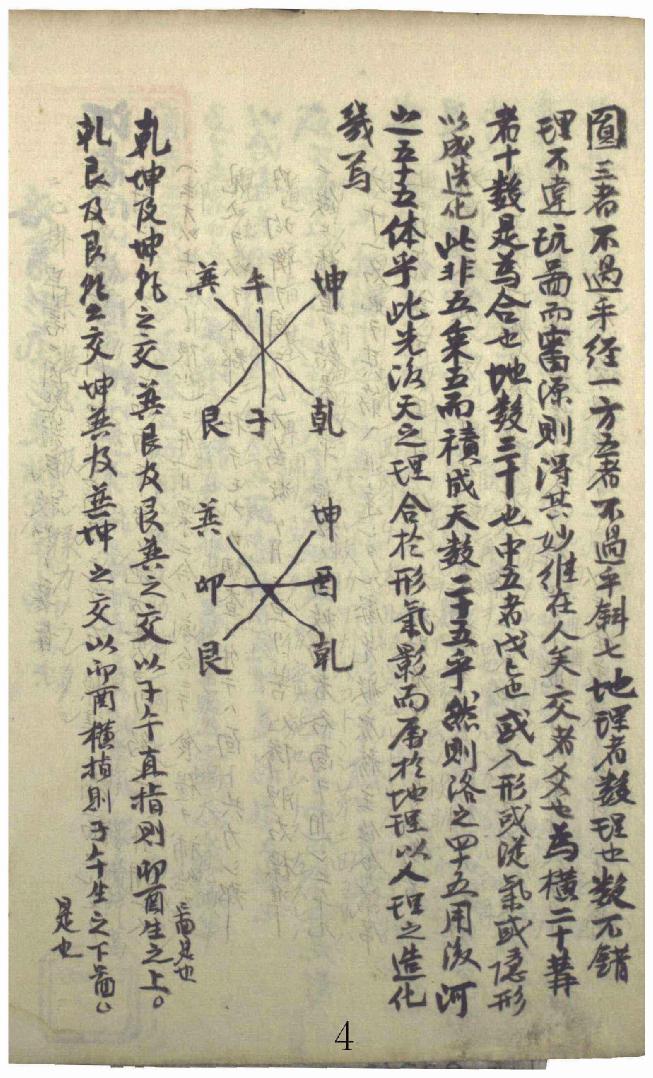 圓三者不過乎徑一方五者不過乎斜七地理者數理也數不錯
理不違玩啚而審源則得其妙維在人矣交者爻也為橫二十葬
者十數是為合也地數三十也中五者戊己也或入形或從氣或隱形
以成造化此非五乘五而積成天數二十五乎然則洛之四十五用後河
之五十五体乎此先後天之理合於形氣影而屬於地理以人理之造化
為
巽 午 坤
艮 子 乾
巽 坤
卯 酉
艮 乾
乾坤及坤乾之交巽艮及艮巽之交以子午直指則卯酉生之上。啚是也
乾艮及艮乾之交坤巽及巽坤之交以卯酉橫指則子午生之下啚是也
4